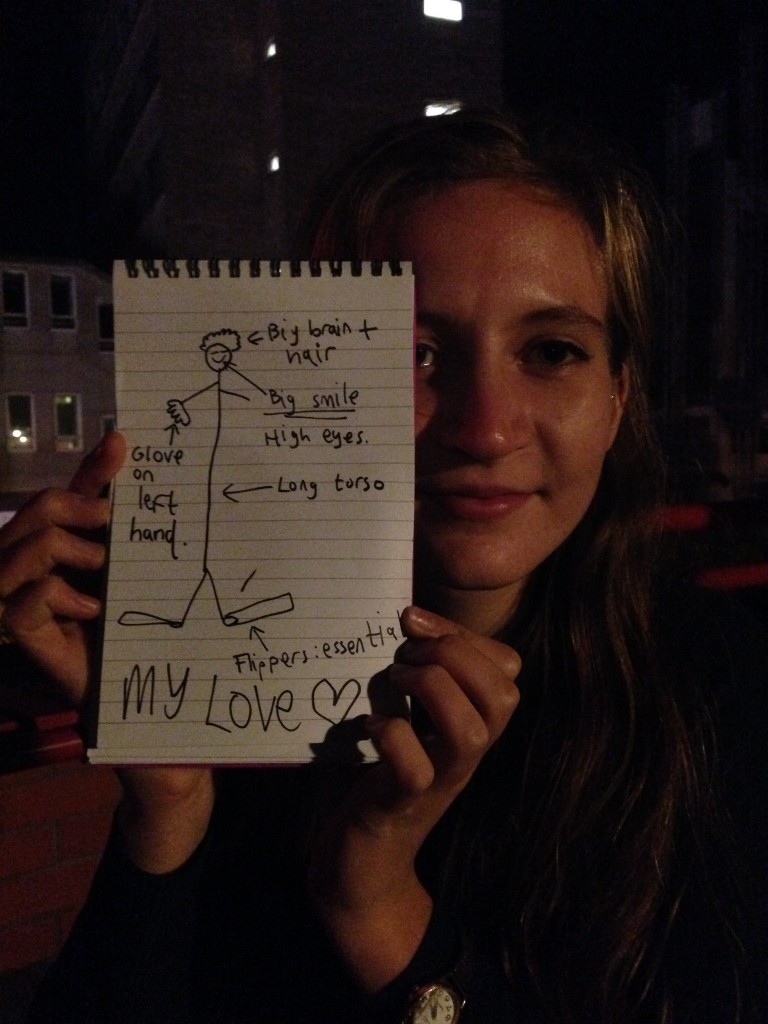 Big brain +
hair
Big smile
High eyes.
Glove
on
left
hand.
Long torso
Flippers: essential
MY LOVE ♡